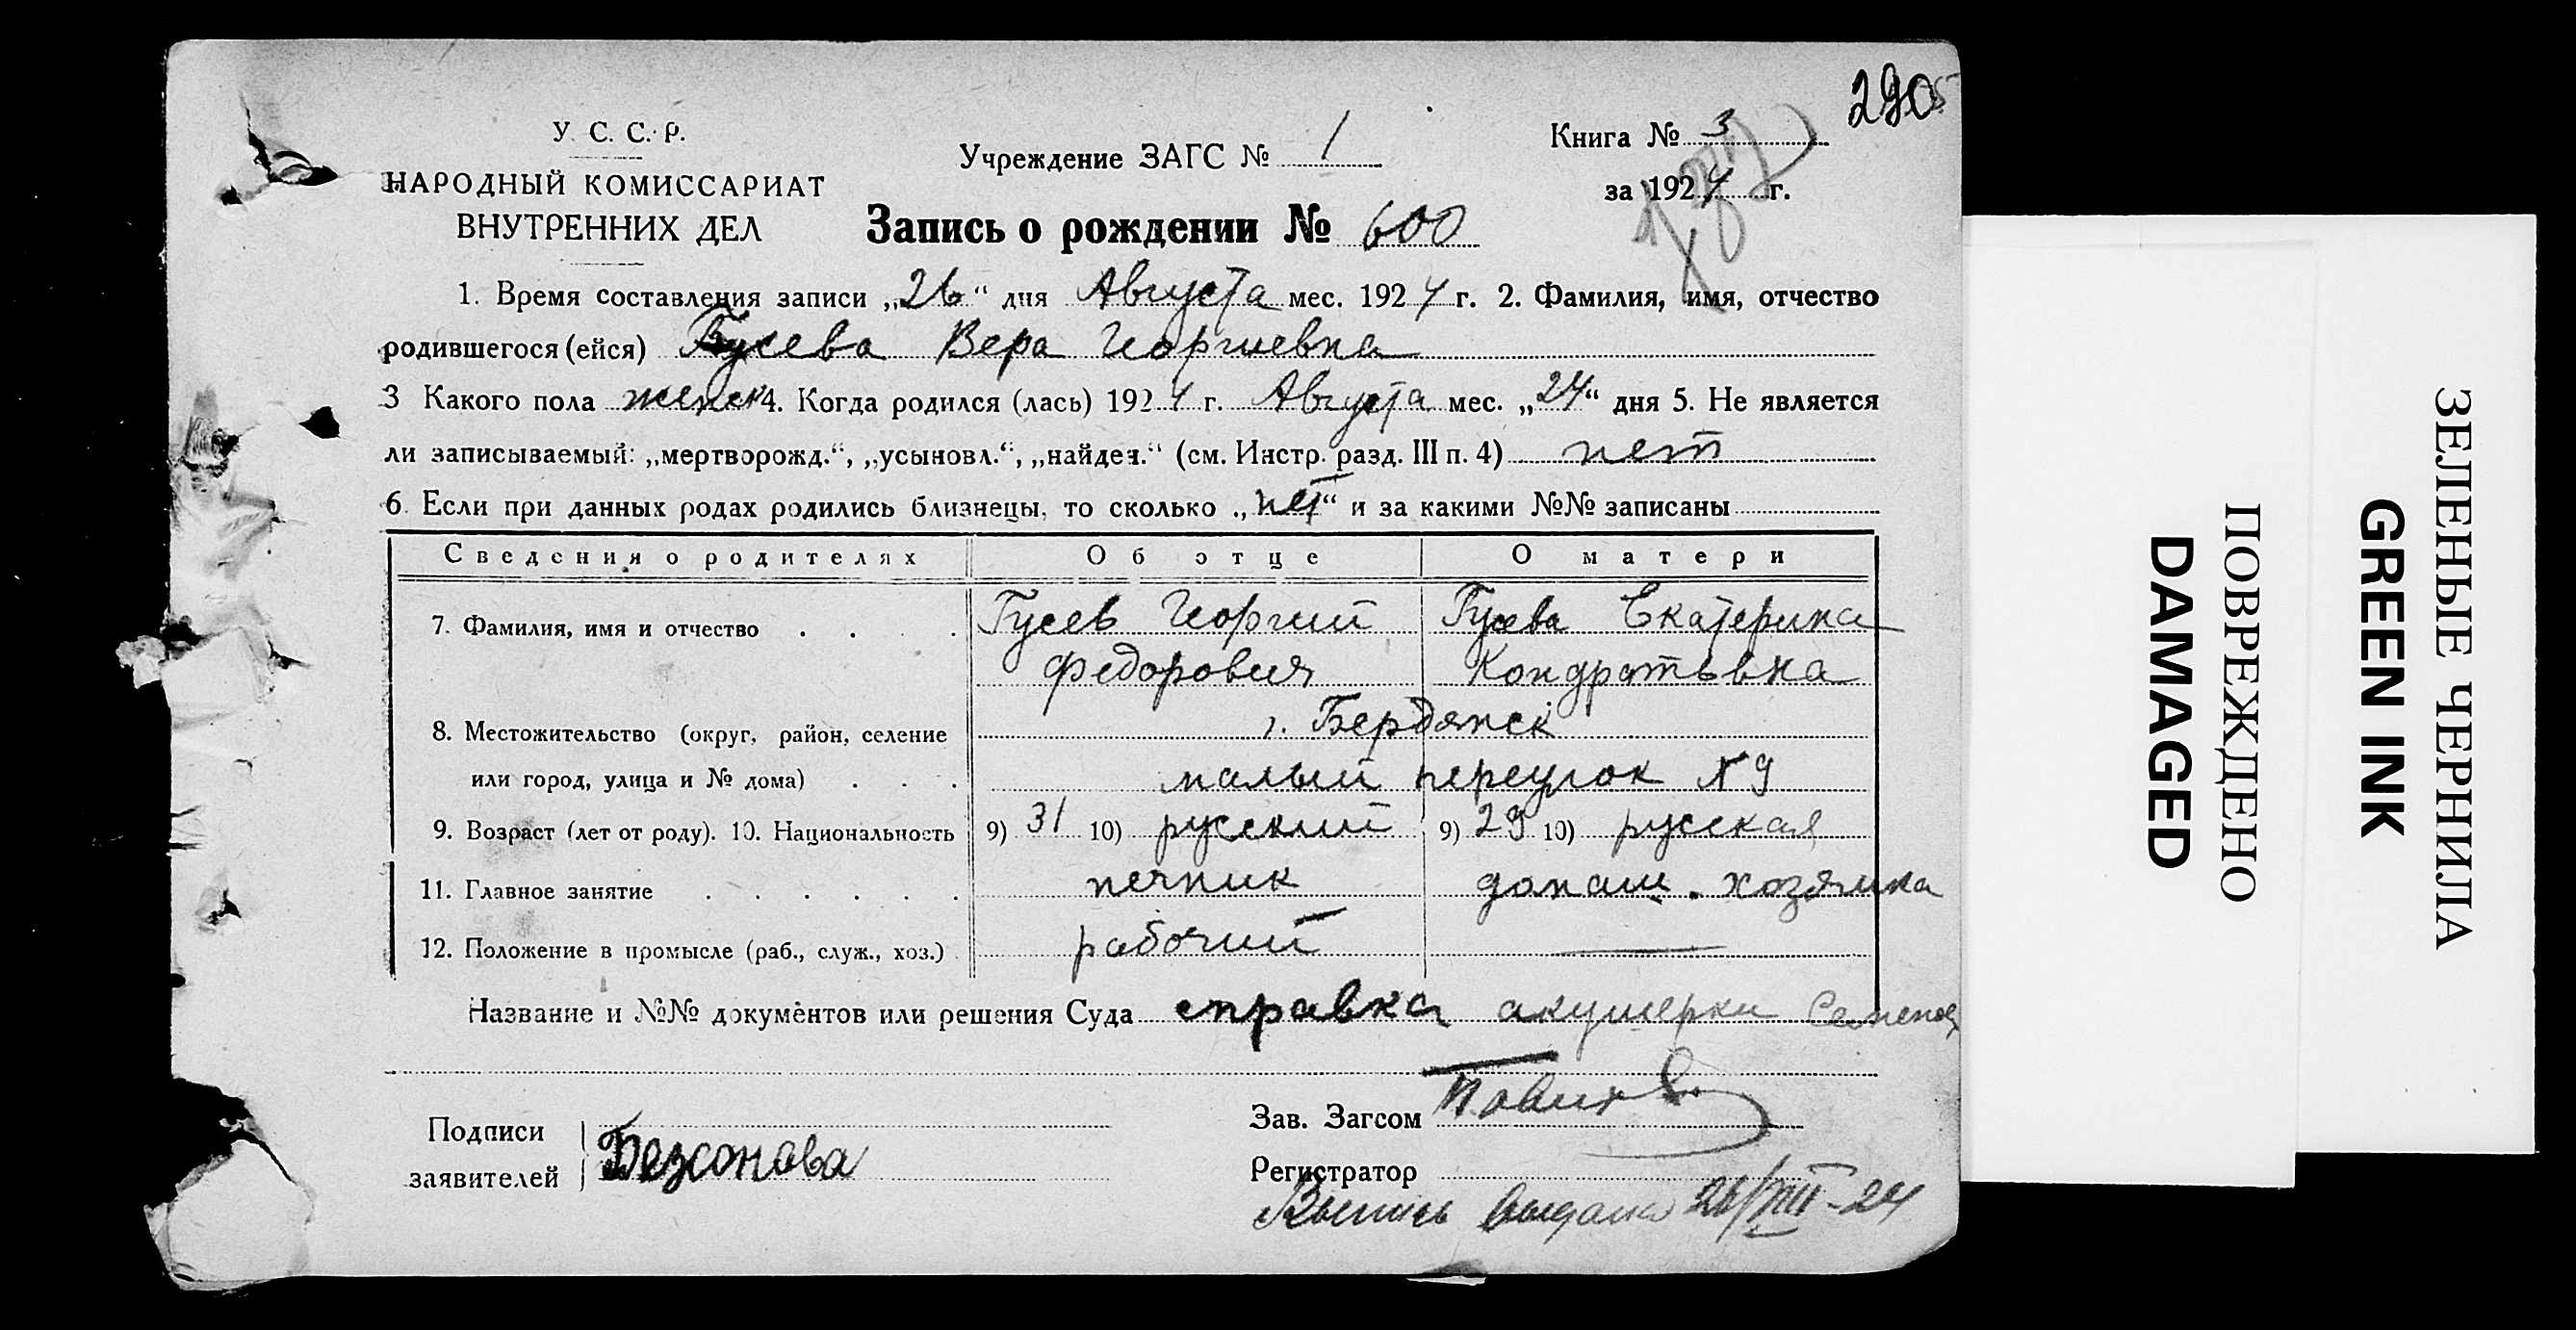 290
У. С. С. Р.
НАРОДНЫЙ КОМИССАРИАТ
ВНУТРЕННИХ ДЕЛ
Учреждение ЗАГС № 1
Книга № 3
за 1924 г.
Запись о рождении № 600
1. Время составления записи „26“ дня Августа мес. 1924 г. 2. Фамилия, имя, отчество
родившегося (ейся) Гусева Вера Георгиевна
3 Какого пола женск 4. Когда родился (лась) 1924 г. Августа мес. „24“ дня 5. Не является
ли записываемый: „мертворожд.“, „усыновл.“, „найден.“ (см. Инстр. разд. III п. 4) нет
6. Если при данных родах родились близнецы, то сколько „нет“ и за какими №№ записаны
Сведения о родителях Об отце О матери
7. Фамилия, имя и отчество . . . . Гусев Георгий Гусева Екатерина
Федорович Кондратьвна
8. Местожительство (округ, район, селение г. Бердянск
или город, улица и № дома) . . . малый переулок № 9
9. Возраст (лет от роду). 10. Национальность 9) 31 10) русский 9) 29 10) русская
11. Главное занятие . . . . . . печник домаш. хозяйка
12. Положение в промысле (раб., служ., хоз.) рабочий —
Название и №№ документов или решения Суда справка акушерки
Подписи
заявителей
Безсонова
Зав. Загсом
Регистратор
Выпись выдана 26/VIII-24
ЗЕЛЕНЫЕ ЧЕРНИЛА
GREEN INK
ПОВРЕЖДЕНО
DAMAGED